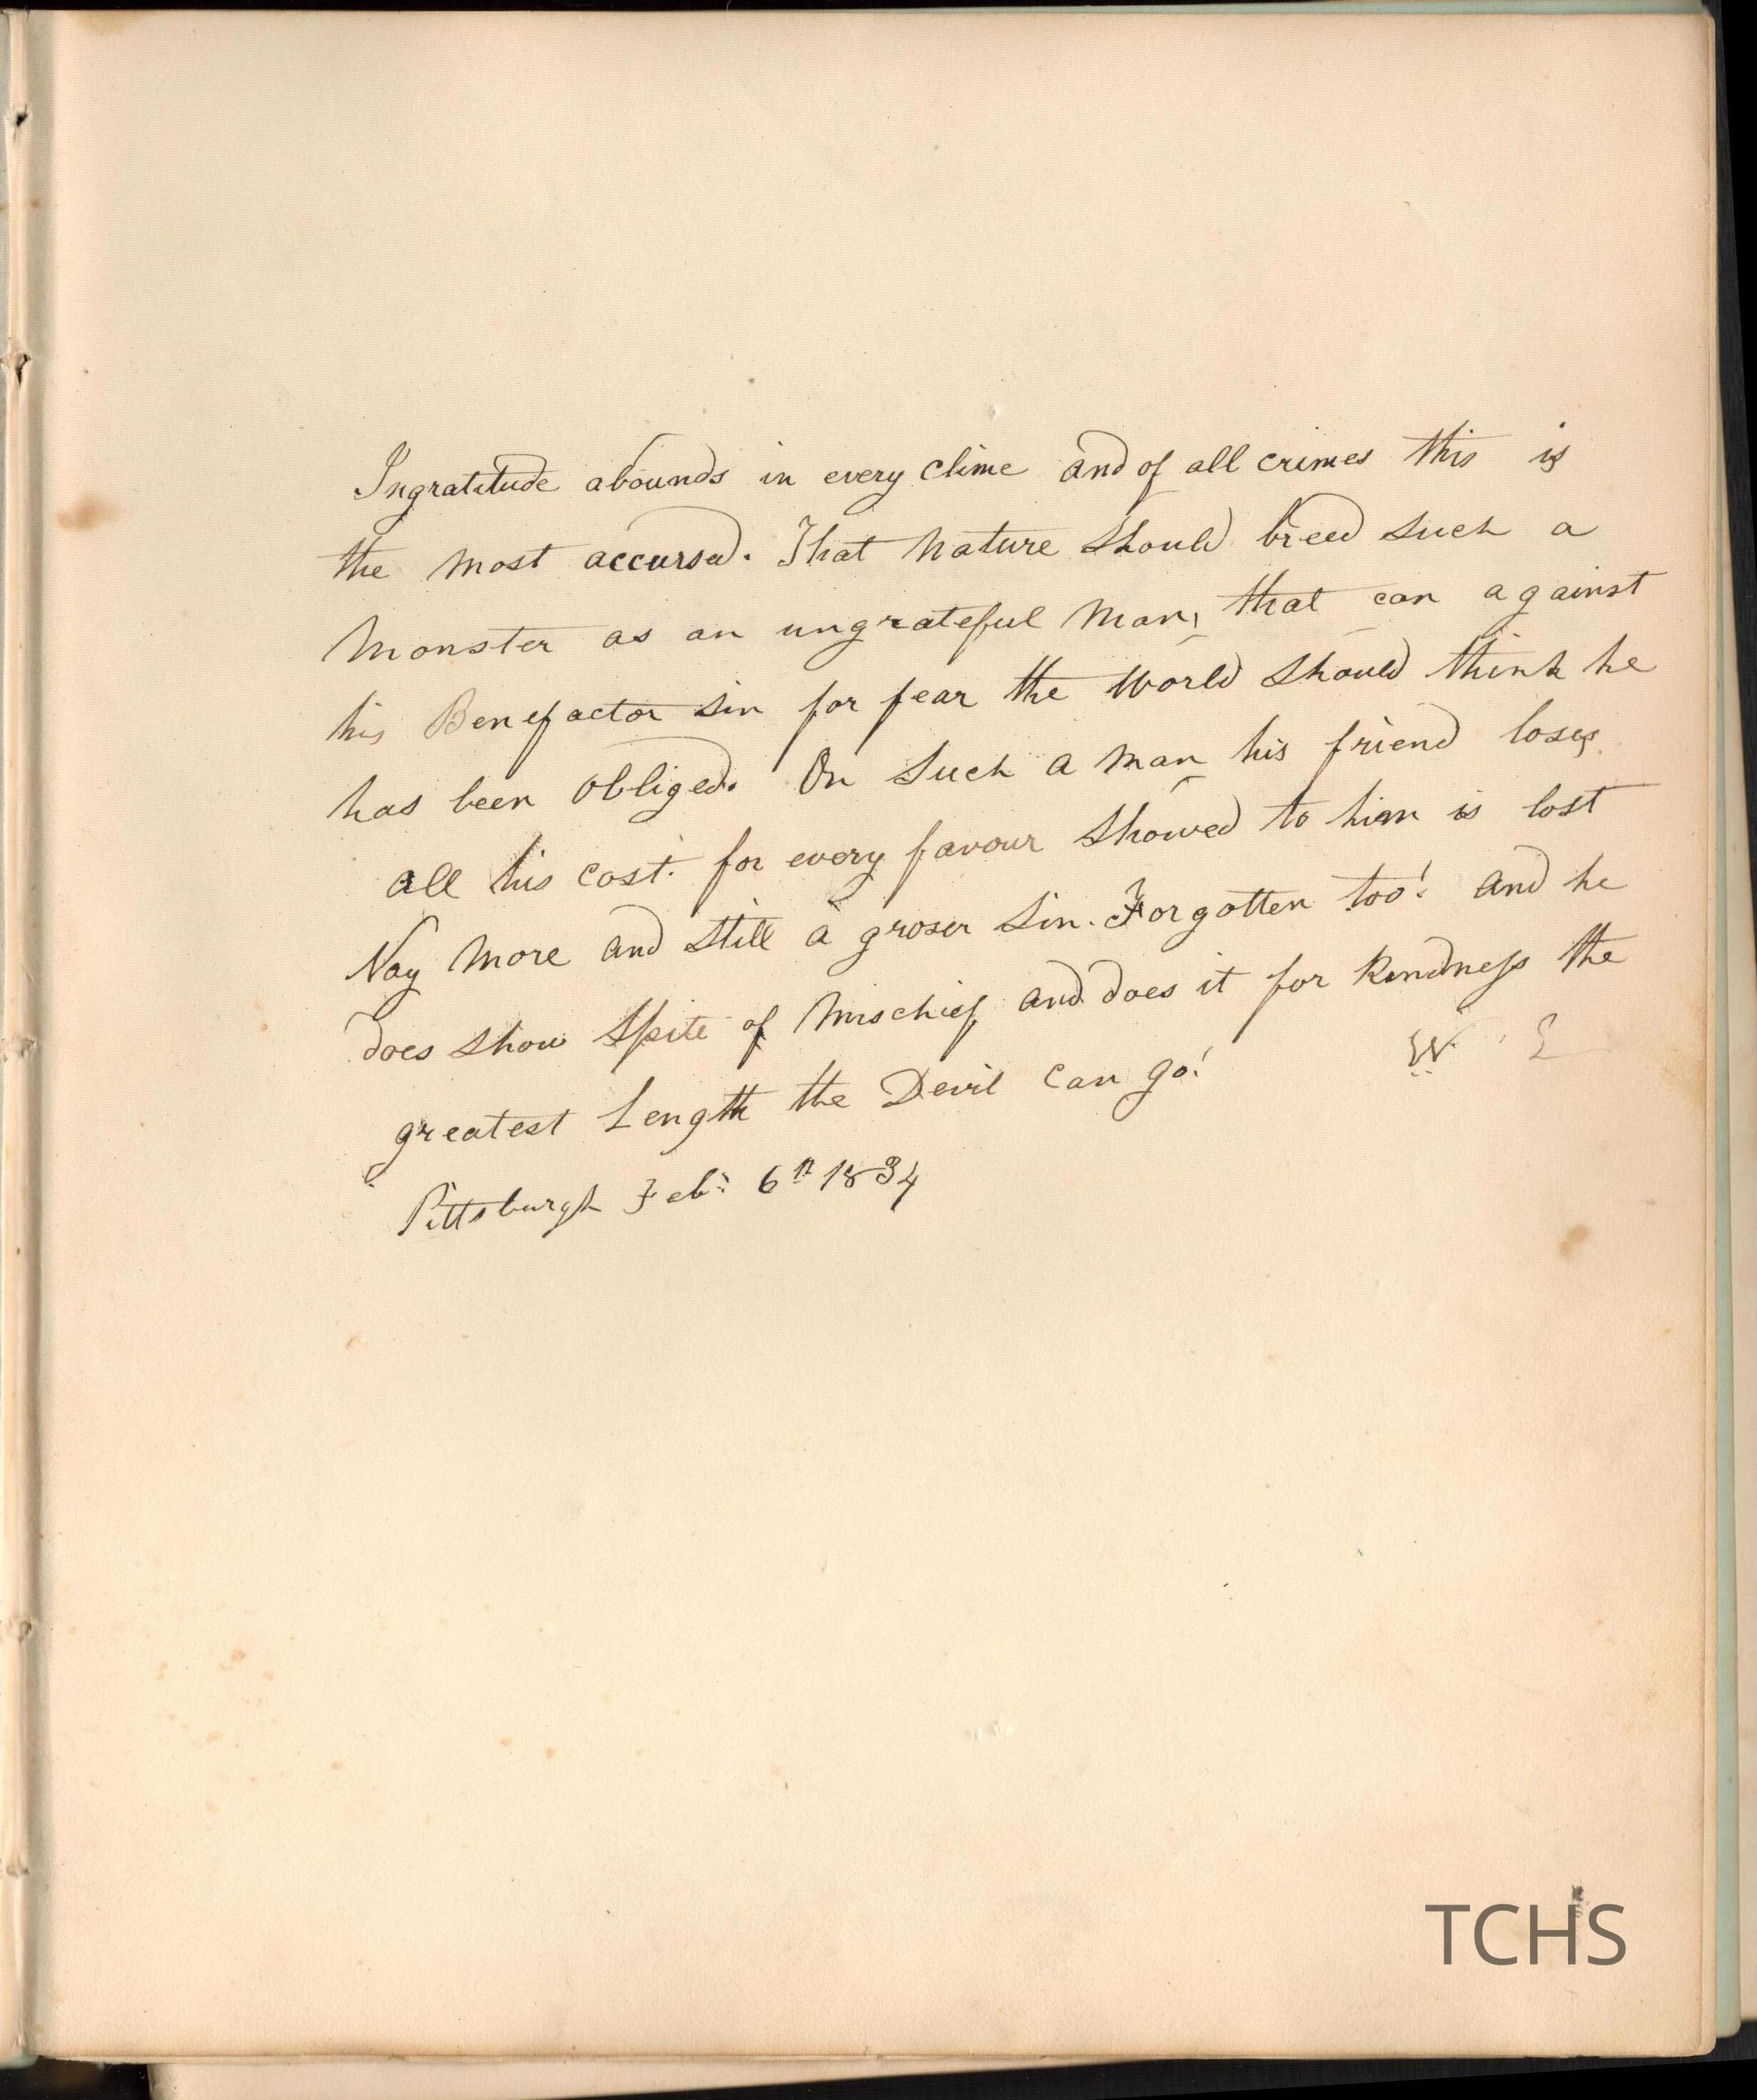 Ingratitude abounds in every clime and of all crimes this is
the most accursed. That nature should breed such a
Monster as an ungrateful Man, that can against
his Benefactor sin for fear the World should think he
has been obliged. On such a man his friend loses
all his cost. for every favour showed to him is lost
Nay more and still a groser sin. Forgotten too! and he
does show spite of Mischief and does it for kindness the
greatest Length the Devil can go!
W E
Pittsburgh Feb: 6th 1834
TCHS